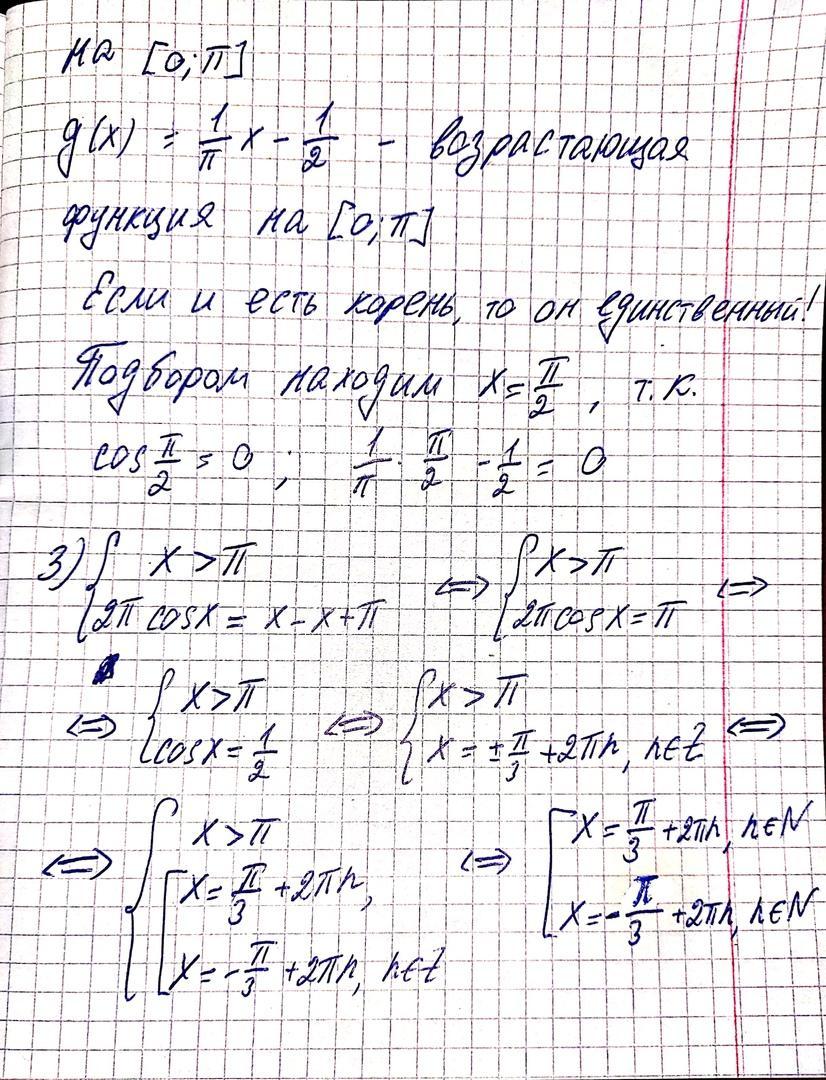 на [0;π]
g(x) = 1/π x - 1/2 - возрастающая
функция на [0;π]
Если и есть корень, то он единственный!
Подбором находим x = π/2, т.к.
cos π/2 = 0; 1/π · π/2 - 1/2 = 0
3) { x > π 2π cosx = x - x + π ⇔ { x > π 2π cosx = π ⇔
⇔ { x > π cosx = 1/2 ⇔ { x > π x = ± π/3 + 2πn, n∈Z ⇔
⇔ { x > π [ x = π/3 + 2πn, x = - π/3 + 2πn, n∈Z ⇔ [ x = π/3 + 2πn, n∈N x = - π/3 + 2πn, n∈N